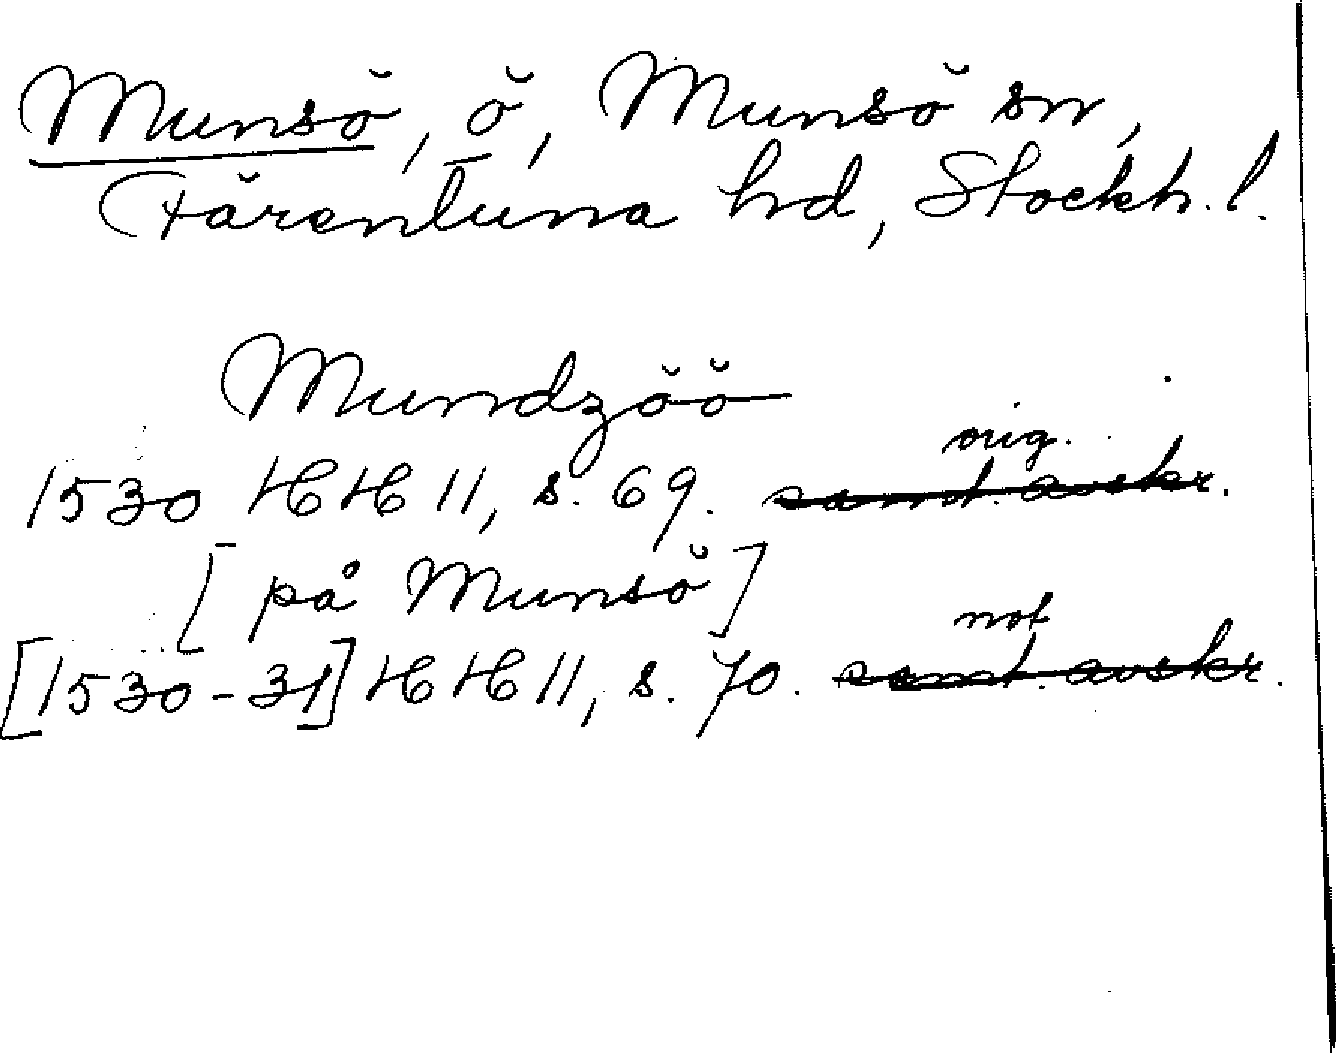 Munsö, ö, Munsö sn,
Färentuna hd, Stockh. l.
Mundzöö
orig.
1530 HH 11, s. 69. samt. avskr.
[på Munsö]
not
[1530-31] HH 11, s. 70. samt. avskr.